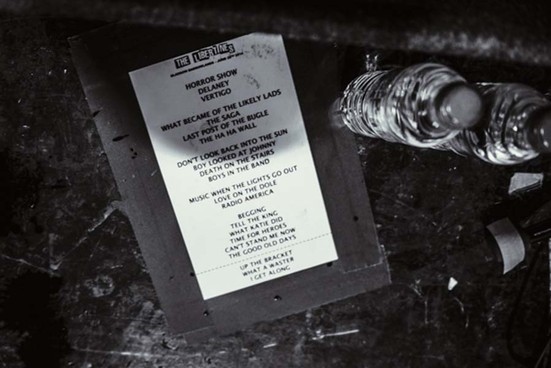 THE LIBERTINES
HORROR SHOW
DELANEY
VERTIGO
WHAT BECAME OF THE LIKELY LADS
THE SAGA
LAST POST OF THE BUGLE
THE HA HA WALL
DON'T LOOK BACK INTO THE SUN
BOY LOOKED AT JOHNNY
DEATH ON THE STAIRS
BOYS IN THE BAND
MUSIC WHEN THE LIGHTS GO OUT
LOVE ON THE DOLE
RADIO AMERICA
BEGGING
TELL THE KING
WHAT KATIE DID
TIME FOR HEROES
CAN'T STAND ME NOW
THE GOOD OLD DAYS
UP THE BRACKET
WHAT A WASTER
I GET ALONG